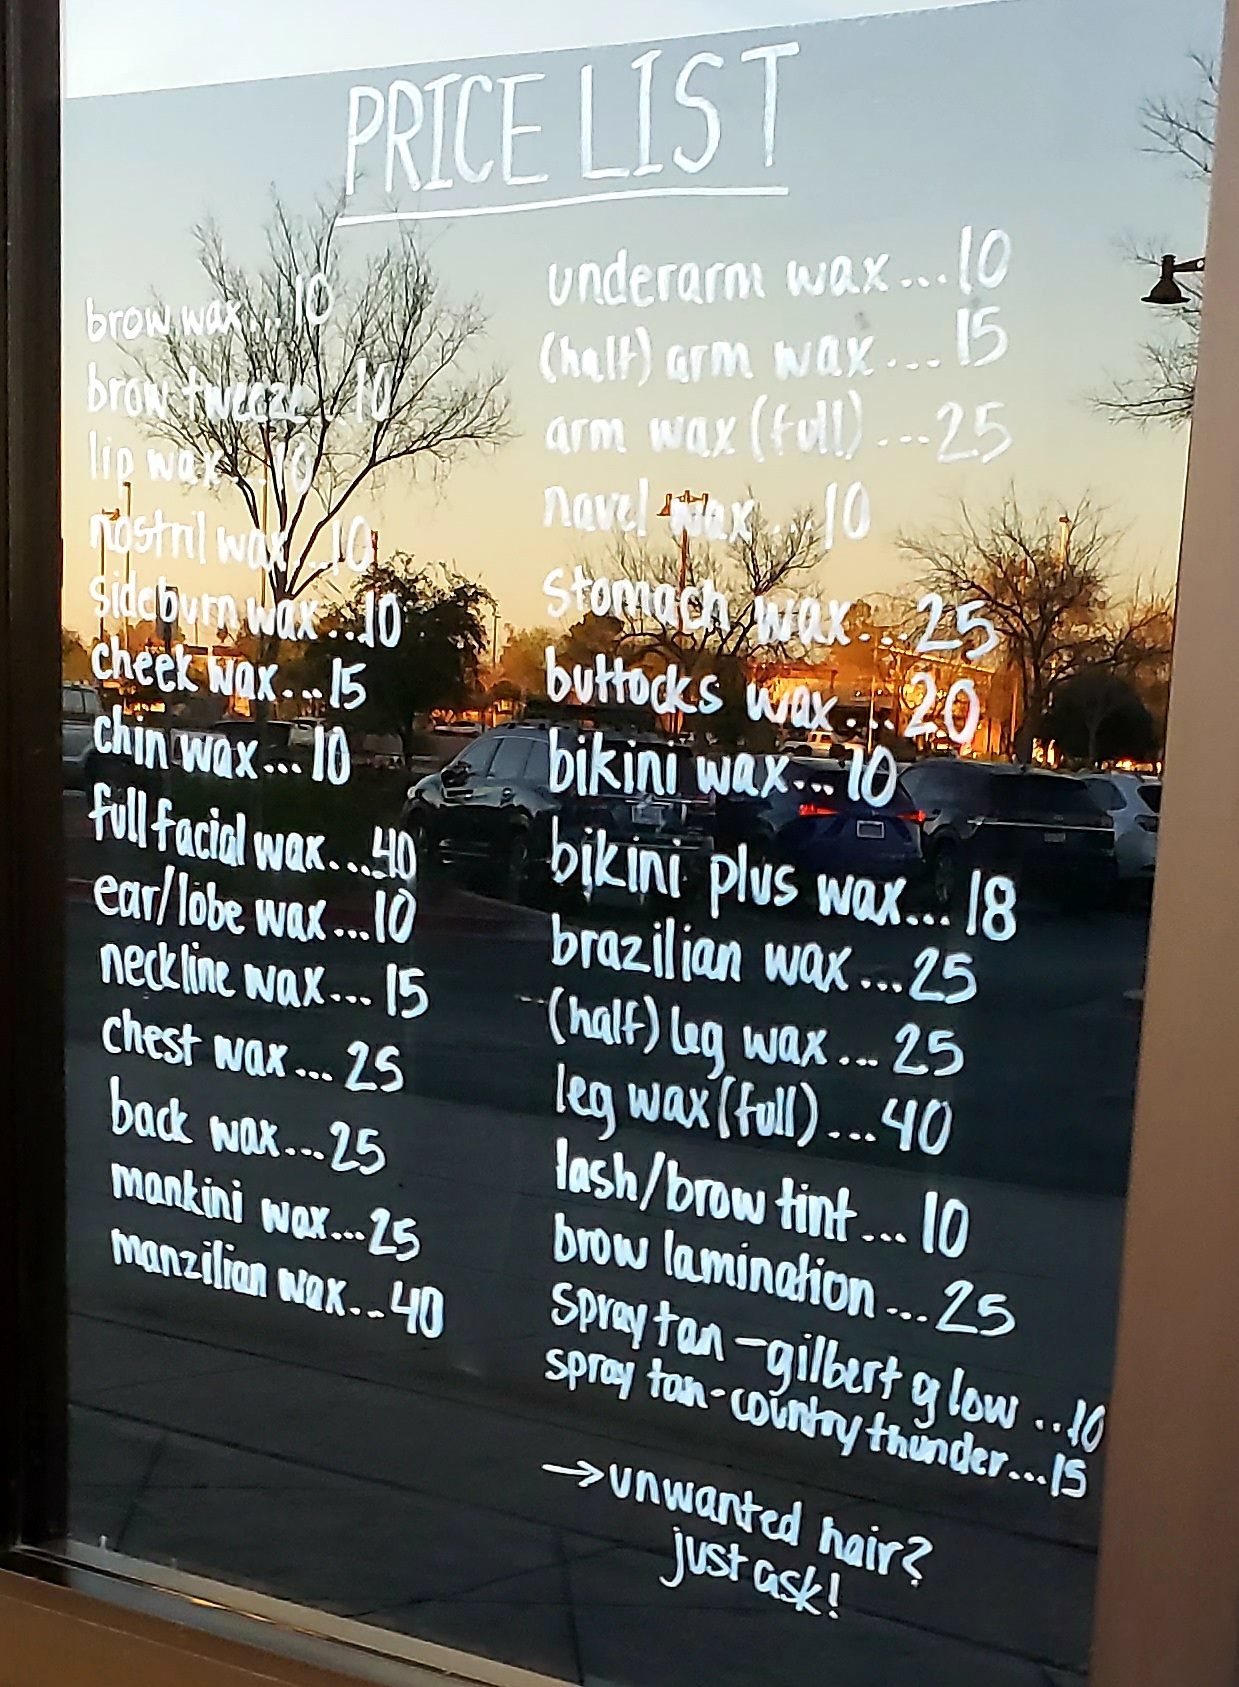 PRICE LIST
brow wax...10
brow tweeze...10
lip wax...10
nostril wax...10
sideburn wax...10
cheek wax...15
chin wax...10
full facial wax...40
ear/lobe wax...10
neckline wax...15
chest wax...25
back wax...25
mankini wax...25
manzilian wax...40
underarm wax...10
(half) arm wax...15
arm wax (full)...25
navel wax...10
stomach wax...25
buttocks wax...20
bikini wax...10
bikini plus wax...18
brazilian wax...25
(half) leg wax...25
leg wax (full)...40
lash/brow tint...10
brow lamination...25
spray tan-gilbert glow..10
spray tan-country thunder...15
→unwanted hair?
just ask!